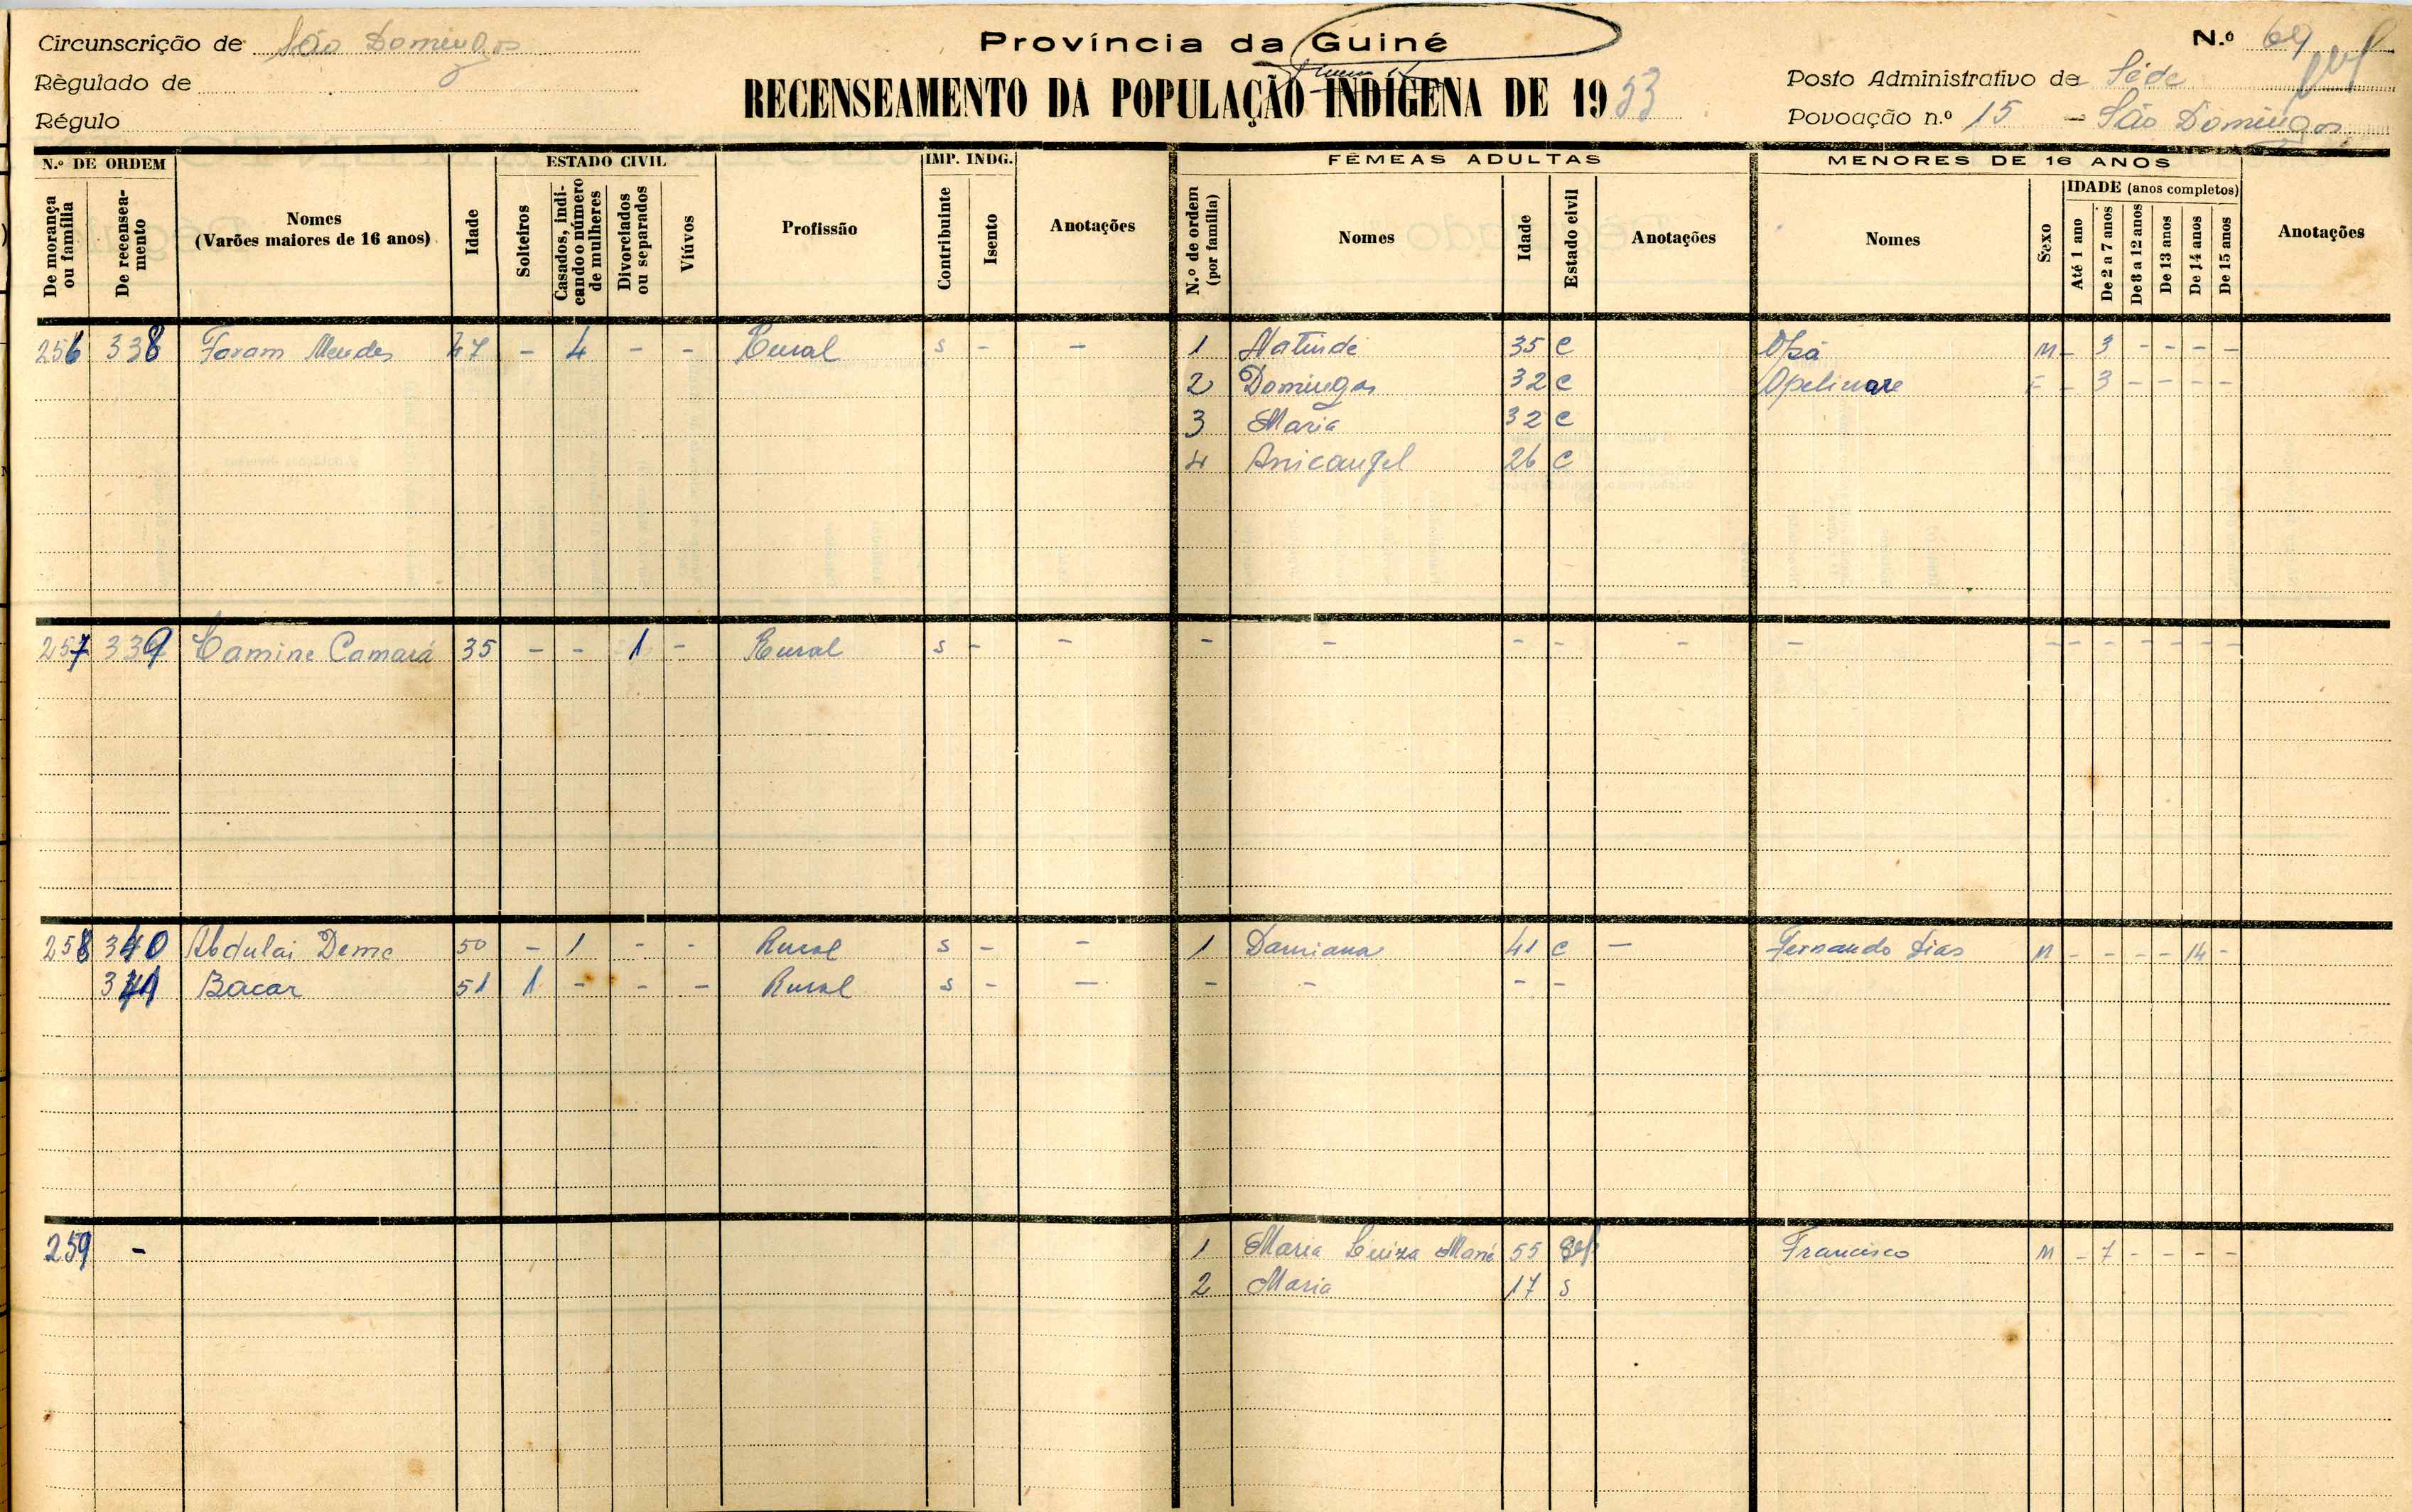 Circunscrição de São Domingos
Règulado de
Régulo
Província da Guiné
RECENSEAMENTO DA POPULAÇÃO INDÍGENA DE 1953
N.º 69
Posto Administrativo de Séde
Povoação n.º 15 - São Domingos
N.º DE ORDEM
De morança ou família
De recenseamento
Nomes
(Varões maiores de 16 anos)
Idade
ESTADO CIVIL
Solteiros
Casados, indicando o número de mulheres
Divorciados ou separados
Viúvos
Profissão
IMP. INDG.
Contribuinte
Isento
Anotações
FÊMEAS ADULTAS
N.º de ordem (por família)
Nomes
Idade
Estado civil
Anotações
MENORES DE 16 ANOS
Nomes
Sexo
IDADE (anos completos)
Até 1 ano
De 2 a 7 anos
De 8 a 12 anos
De 13 anos
De 14 anos
De 15 anos
Anotações
256 338 Faram Mendes 47 - 4 - - Rural S - - 1 Natinde 35 C M - 3 - - - -
2 Domingas 32 C Opelinare F - 3 - - - -
3 Maria 32 C
4 26 C
257 339 Lamine Camará 35 - - 1 - Rural S - - - - - - - - - - - - - - -
258 340 Abdulai Deme 50 - 1 - - Rural S - - 1 Damiana 41 C - Fernando Dias M - - - - 14 -
341 Bacar 51 1 - - - Rural S - - - - - -
259 - 1 Maria Luiza Mané 55 Francisco M - 7 - - - -
2 Maria 17 S